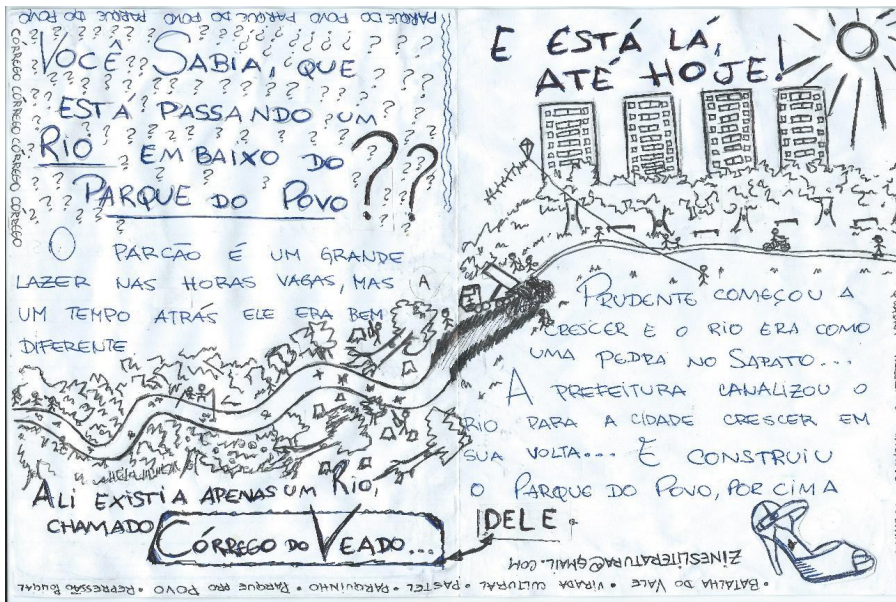 PARQUE DO POVO PARQUE DO POVO PARQUE DO POVO PARQUE DO POVO
CÓRREGO CÓRREGO CÓRREGO CÓRREGO CÓRREGO
VOCÊ SABIA, QUE
ESTÁ PASSANDO UM
RIO EM BAIXO DO
PARQUE DO POVO??
O PARCÃO É UM GRANDE
LAZER NAS HORAS VAGAS, MAS
UM TEMPO ATRÁS ELE ERA BEM
DIFERENTE
ALI EXISTIA APENAS UM RIO,
CHAMADO
CÓRREGO DO VEADO...
E ESTÁ LÁ,
ATÉ HOJE!
A
PRUDENTE COMEÇOU A
CRESCER E O RIO ERA COMO
UMA PEDRA NO SAPATO...
A PREFEITURA CANALIZOU O
RIO PARA A CIDADE CRESCER EM
SUA VOLTA... E CONSTRUIU
O PARQUE DO POVO, POR CIMA
DELE.
ZINESLITERATURA@GMAIL.COM
• BATALHA DO VALE • VIRADA CULTURAL • PASTEL • PARQUINHO • PARQUE PRO POVO • REPRESSÃO POLICIAL